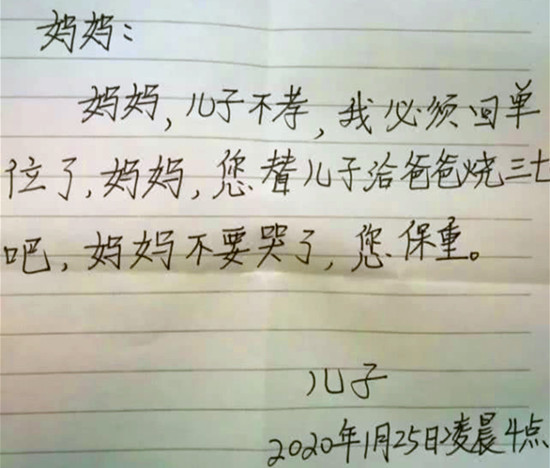 妈妈：
妈妈，儿子不孝，我必须回单
位了，妈妈，您替儿子给爸爸烧三七
吧，妈妈不要哭了，您保重。
儿子
2020年1月25日凌晨4点